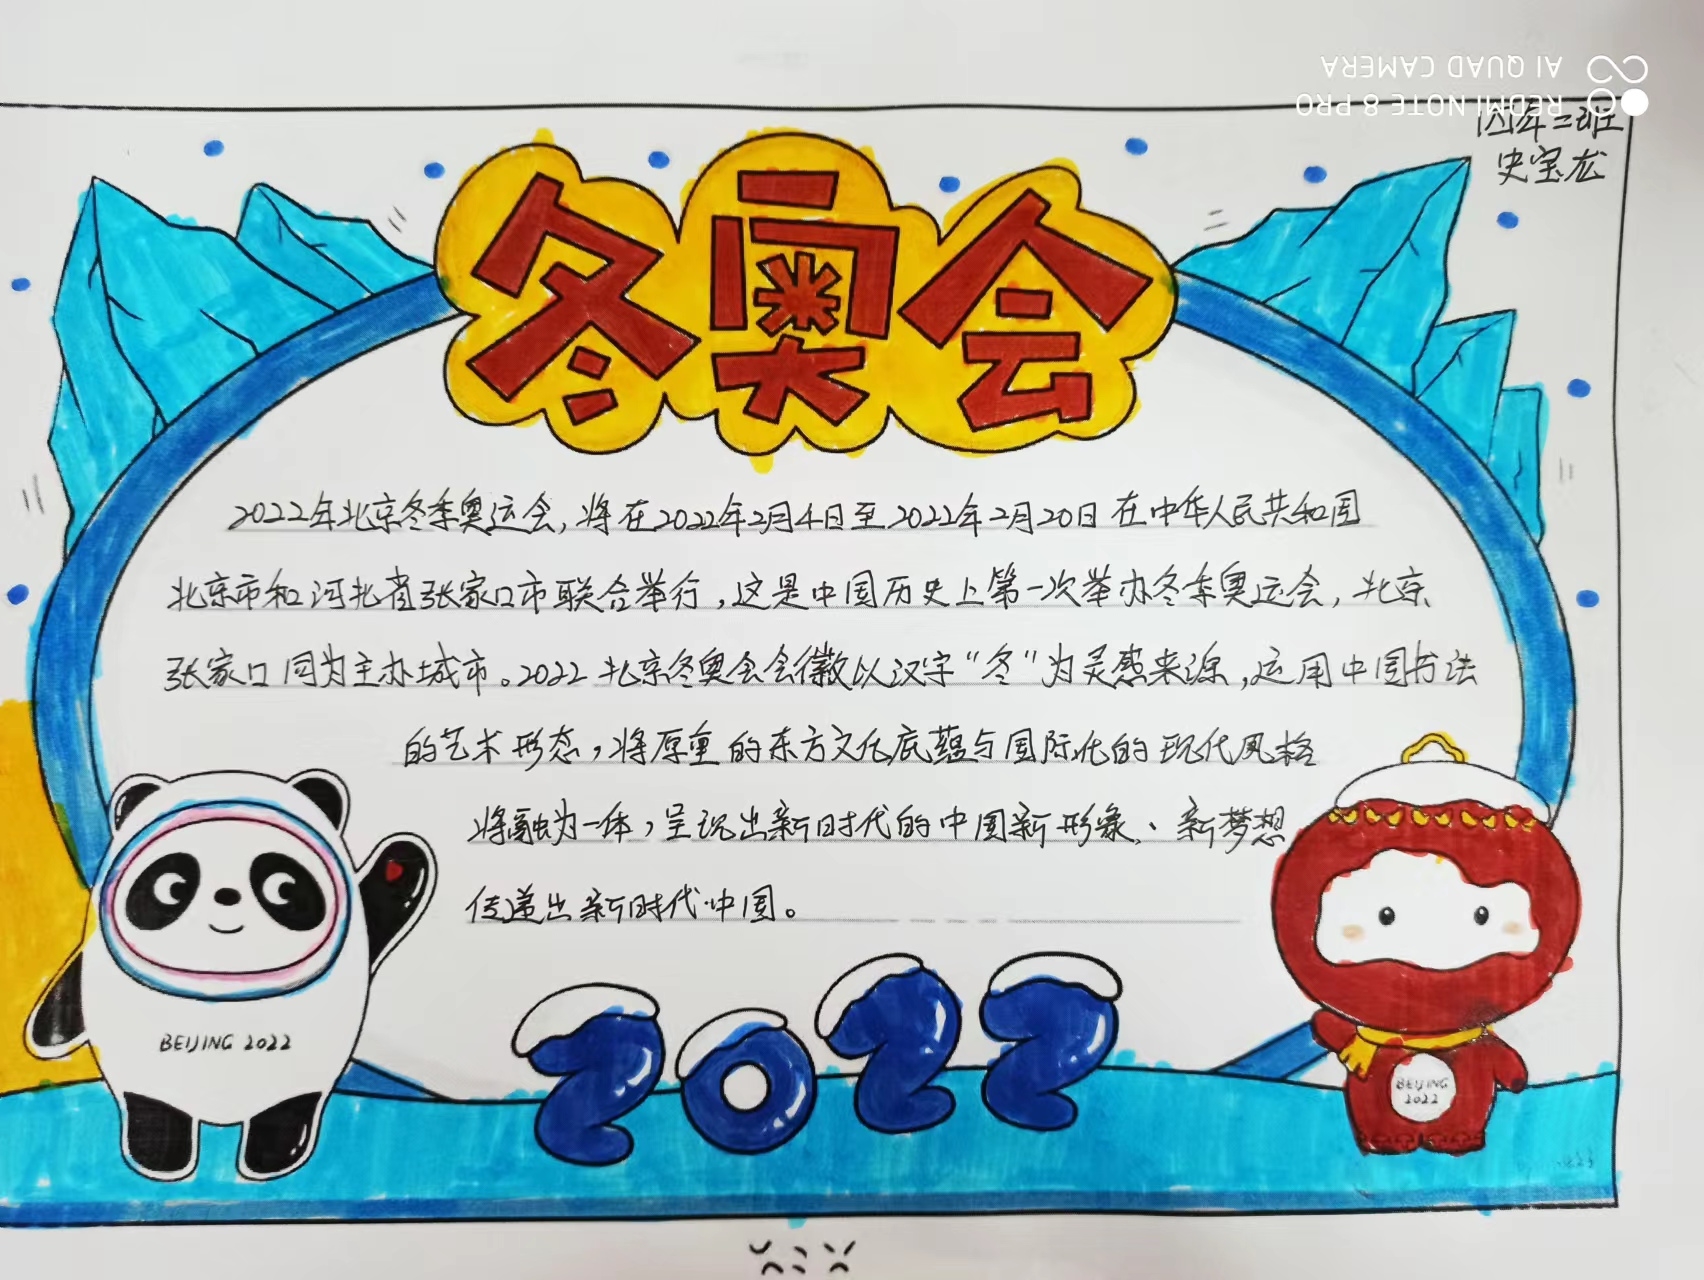 REDMI NOTE 8 PRO
AI QUAD CAMERA
四年二班
史宝龙
冬奥会
2022年北京冬季奥运会,将在2022年2月4日至2022年2月20日在中华人民共和国
北京市和河北省张家口市联合举行,这是中国历史上第一次举办冬季奥运会,北京
张家口同为主办城市。2022北京冬奥会会徽以汉字“冬”为灵感来源,运用中国书法
的艺术形态,将厚重的东方文化底蕴与国际化的现代风格
将融为一体,呈现出新时代的中国新形象、新梦想
传递出新时代中国。
BEIJING 2022
2022
BEIJING
2022